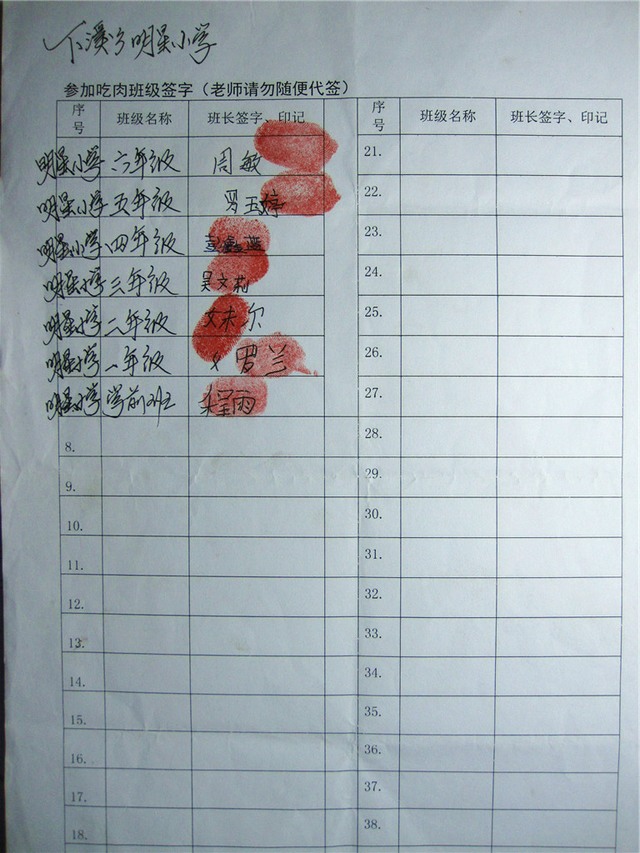 下溪乡明星小学
参加吃肉班级签字（老师请勿随便代签）
序号 班级名称 班长签字、印记 序号 班级名称 班长签字、印记
明星小学 六年级 周敏 21.
明星小学 五年级 罗玉婷 22.
明星小学 四年级 23.
明星小学 三年级 吴文莉 24.
明星小学 二年级 25.
明星小学 一年级 罗兰 26.
明星小学 学前班 程雨 27.
8. 28.
9. 29.
10. 30.
11. 31.
12. 32.
13. 33.
14. 34.
15. 35.
16. 36.
17. 37.
18. 38.